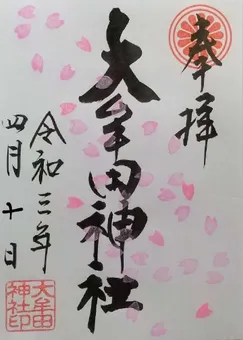 奉拝
大牟田神社
令和三年
四月十日
大牟田
神社印